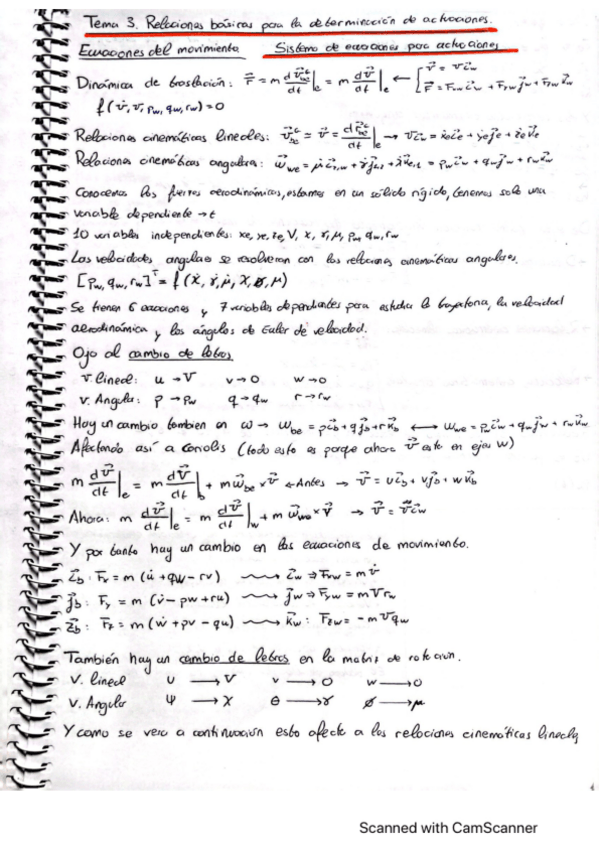 Tema 3. Relaciones básicas para la determinación de actuaciones.
Ecuaciones del movimiento Sistema de ecuaciones para actuaciones
Dinámica de traslación: F⃗ = m dv⃗/dt|e = m dv⃗/dt|e ← [ v⃗ = V i⃗w
F⃗ = Fxw i⃗w + Fyw j⃗w + Fzw k⃗w
f(v̇, v, pw, qw, rw) = 0
Relaciones cinemáticas lineales: = v⃗ = |e → V i⃗w = ẋe i⃗e + ẏe j⃗e + że k⃗e
Relaciones cinemáticas angulares: ω⃗we = μ̇ + γ̇ + χ̇ = pw i⃗w + qw j⃗w + rw k⃗w
Conocemos las fuerzas aerodinámicas, estamos en un sólido rígido, tenemos solo una
variable dependiente → t
10 variables independientes: xe, ye, ze, V, χ, γ, μ, pw, qw, rw
Las velocidades angulares se resolverán con las relaciones cinemáticas angulares.
[pw, qw, rw]ᵀ = f(χ̇, γ̇, μ̇, χ, γ, μ)
Se tienen 6 ecuaciones y 7 variables dependientes para estudiar la trayectoria, la velocidad
aerodinámica y los ángulos de Euler de velocidad.
Ojo al cambio de letras
v. lineal: u → V v → 0 w → 0
v. Angular: p → pw q → qw r → rw
Hay un cambio tambien en ω → ωbe = p i⃗b + q j⃗b + r k⃗b ⟷ ωwe = pw i⃗w + qw j⃗w + rw k⃗w
Afectando así a coriolis (todo esto es porque ahora v⃗ está en ejes w)
m dv⃗/dt|e = m dv⃗/dt|b + m ω⃗be × v⃗ ← Antes → v⃗ = u i⃗b + v j⃗b + w k⃗b
Ahora: m dv⃗/dt|e = m dv⃗/dt|w + m ω⃗we × v⃗ → v⃗ = V i⃗w
Y por tanto hay un cambio en las ecuaciones de movimiento.
i⃗b: Fx = m (u̇ + qw − rv) ⟿ i⃗w ⇒ Fxw = m v̇
j⃗b: Fy = m (v̇ − pw + ru) ⟿ j⃗w ⇒ Fyw = m V rw
z⃗b: Fz = m (ẇ + pv − qu) ⟿ k⃗w: Fzw = − m V qw
También hay un cambio de letras en la matriz de rotación.
V. lineal u → V v → 0 w → 0
V. Angular ψ → χ θ → γ ϕ → μ
Y como se verá a continuación esto afecta a las relaciones cinemáticas lineales
Scanned with CamScanner